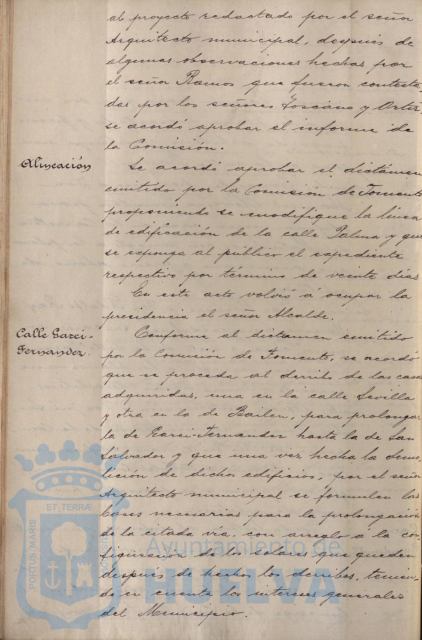 al proyecto redactado por el señor
Arquitecto municipal, después de
algunas observaciones hechas por
el señor Ramos que fueron contesta-
das por los señores Toscano y Ortiz
se acordó aprobar el informe de
la Comisión.
Alineación
Se acordó aprobar el dictámen
emitido por la Comisión de Fomento
proponiendo se modifique la línea
de edificación de la calle Palma y que
se exponga al público el expediente
respectivo por término de veinte días
En este acto volvió á ocupar la
presidencia el señor Alcalde.
Calle Garci-
Fernandez
Conforme al dictamen emitido
por la Comisión de Fomento, se acordó
que se proceda al derribo de las casas
adquiridas, una en la calle Sevilla
y otra en la de Bailen, para prolongar
la de Garci-Fernandez hasta la de San
Salvador y que una vez hecha la demo-
lición de dichos edificios, por el señor
Arquitecto municipal se formulen las
bases necesarias para la prolongación
de la citada vía, con arreglo a la con-
figuración de los solares que queden
después de hechos los derribos, tenien-
do en cuenta los intereses generales
del Municipio.
PORTUS MARIS ET TERRAE
Ayuntamiento de
HUELVA